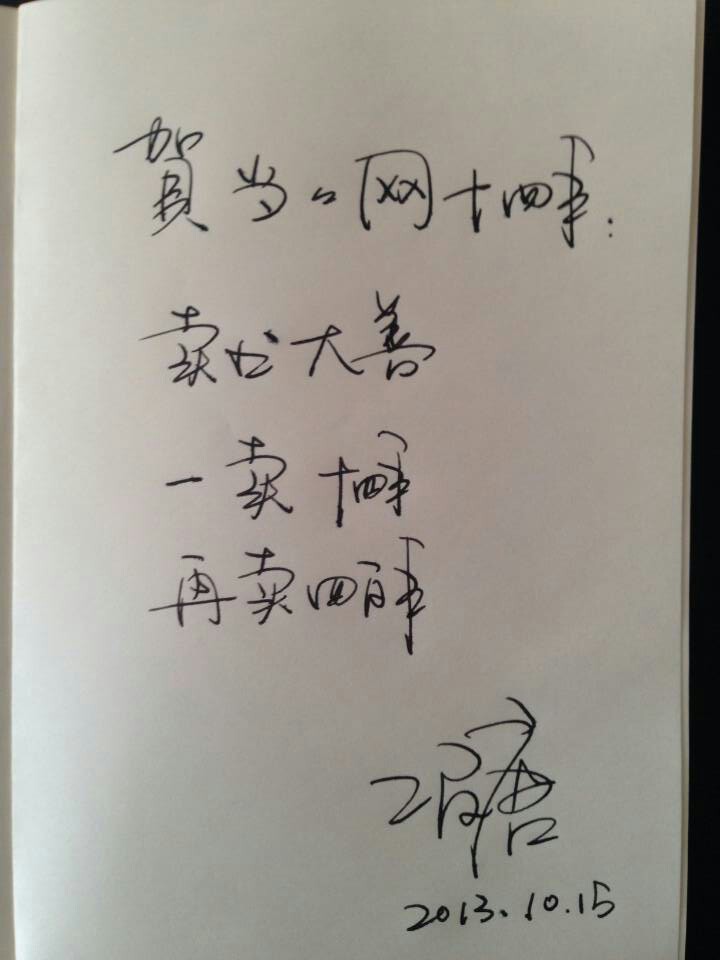 賀当当网十四年:
卖书大善
一卖十四年
再卖四百年
冯唐
2013.10.15